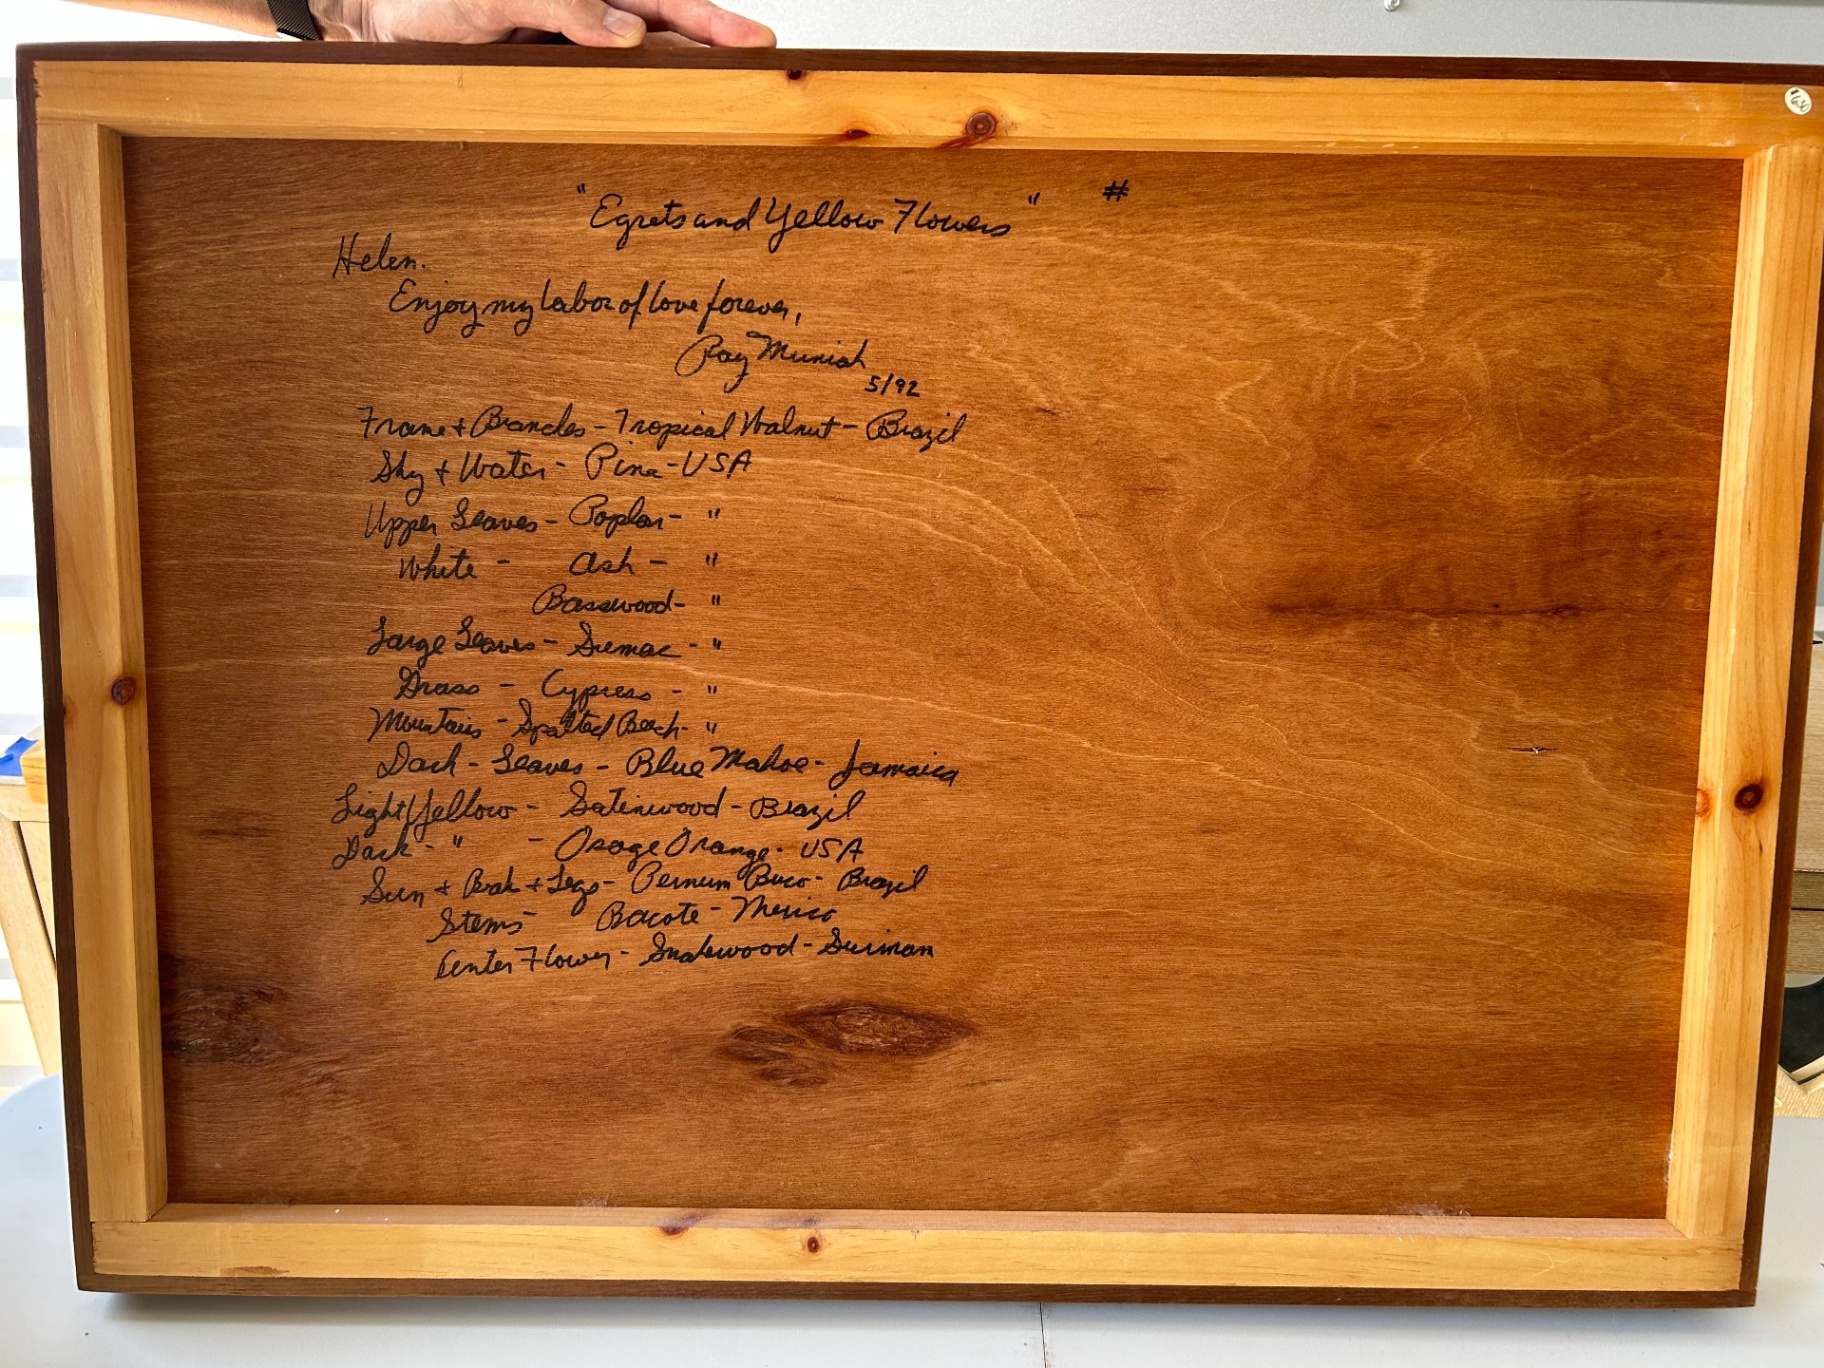 "Egrets and Yellow Flowers" #
Helen.
Enjoy my labor of love forever,
Ray
5/92
Frame + Branches - Tropical Walnut - Brazil
Sky + Water - Pine - USA
Upper Leaves - Poplar - "
White - Ash - "
Basswood - "
Large Leaves - Sumac - "
Grass - Cypress - "
Mountains - Spalted Beech - "
Dark - Leaves - Blue Mahoe - Jamaica
Light Yellow - Satinwood - Brazil
Dark - " - Osage Orange - USA
Sun + Beak + Legs - Pernum Buco - Brazil
Stems - Bocote - Mexico
Center Flower - Snakewood - Surinam